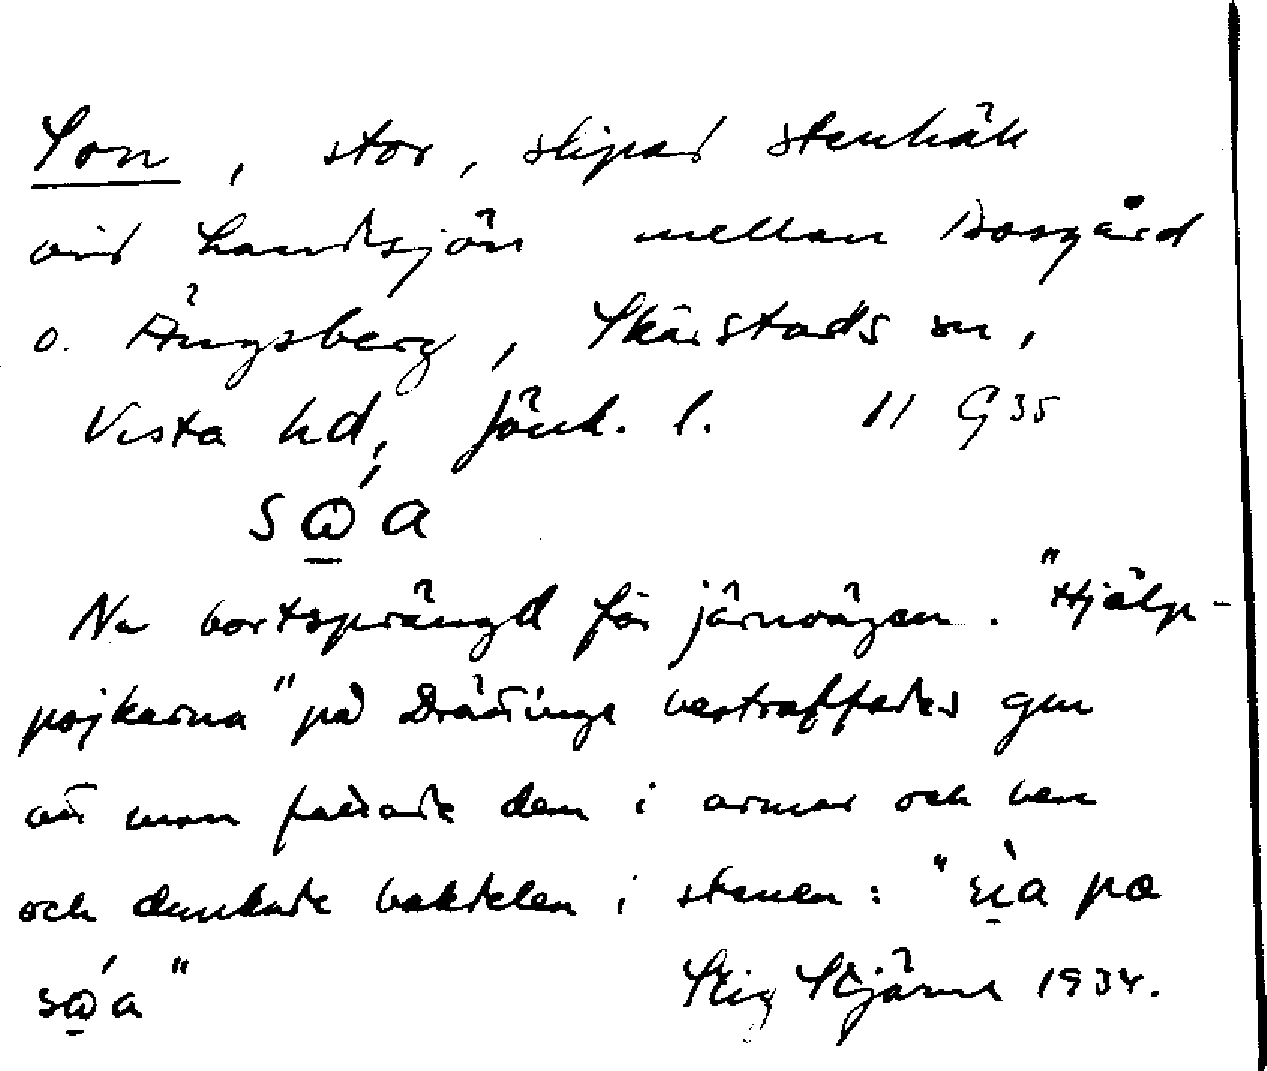 Son, stor, slipad stenhäll
vid Landsjön mellan Dosgård
o. Ängsberg, Skärstads sn,
Vista hd, Jönk. l. 11 G 35
Nu bortsprängd för järnvägen. "Hjälp-
pojkarna" på Drättinge bestraffades gm
att man fattade dem i armar och ben
och dunkade bakdelen i stenen: "
Stig Stjärna 1934.